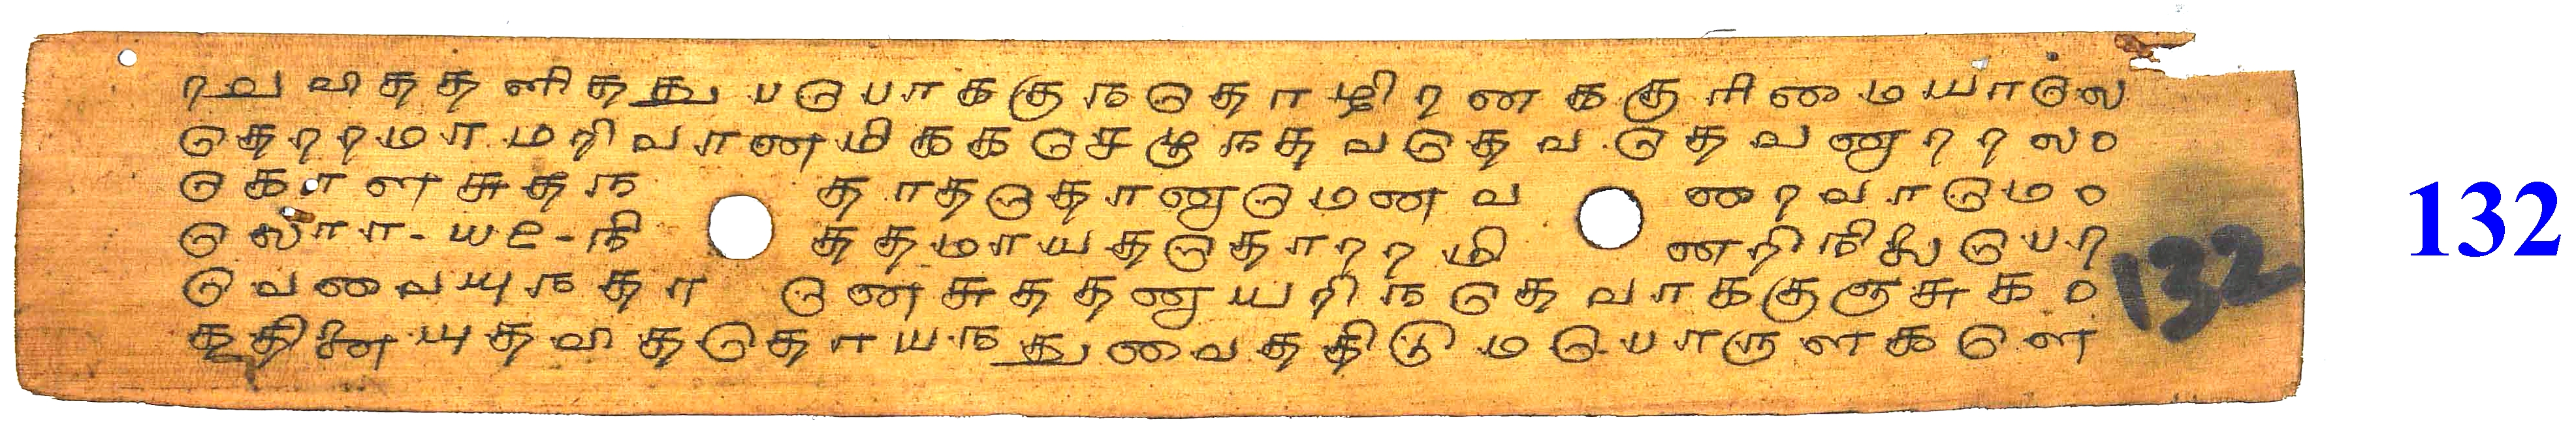 ரவவிததளிதது யெயாககுநதொழிரனககுரிமையாலெ
தெரரமாமறிவாணமிககசெழுநதவதெவதெவனுரரல௦
கொளசுதந தாததெதானுமெணவ ணைரவாமெ௦
லொா-ய௨-நி ததமாயததெதாரரமி னறிநிதுயெர
வெவையுநதா னெசுததனுயறிநதெவாககுளுசுக௦
தூதினையுதவிததொயநதுவைததிடுமபொருளகளெ
132
132